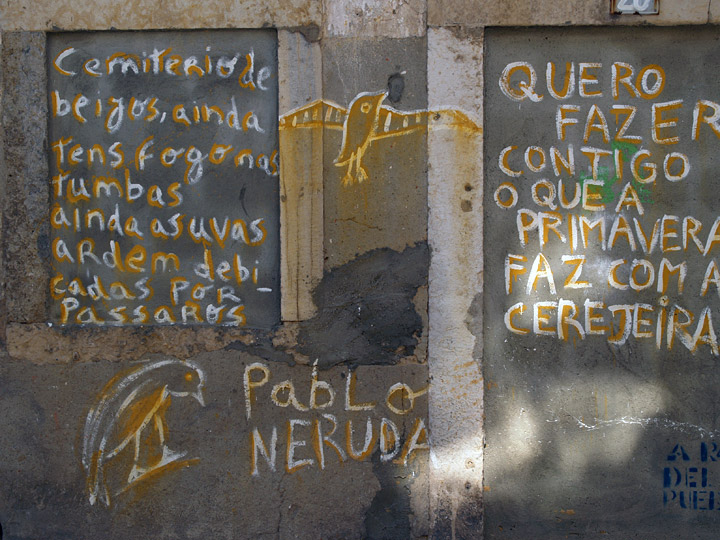 Cemiterio de
beijos, ainda
tens fogo nas
tumbas
ainda as uvas
ardem debi
cadas por -
Passaros
Pablo
NERUDA
20
QUERO
FAZER
CONTIGO
O QUE A
PRIMAVERA
FAZ COM A
CEREJEIRA
A R
DEL
PUEB